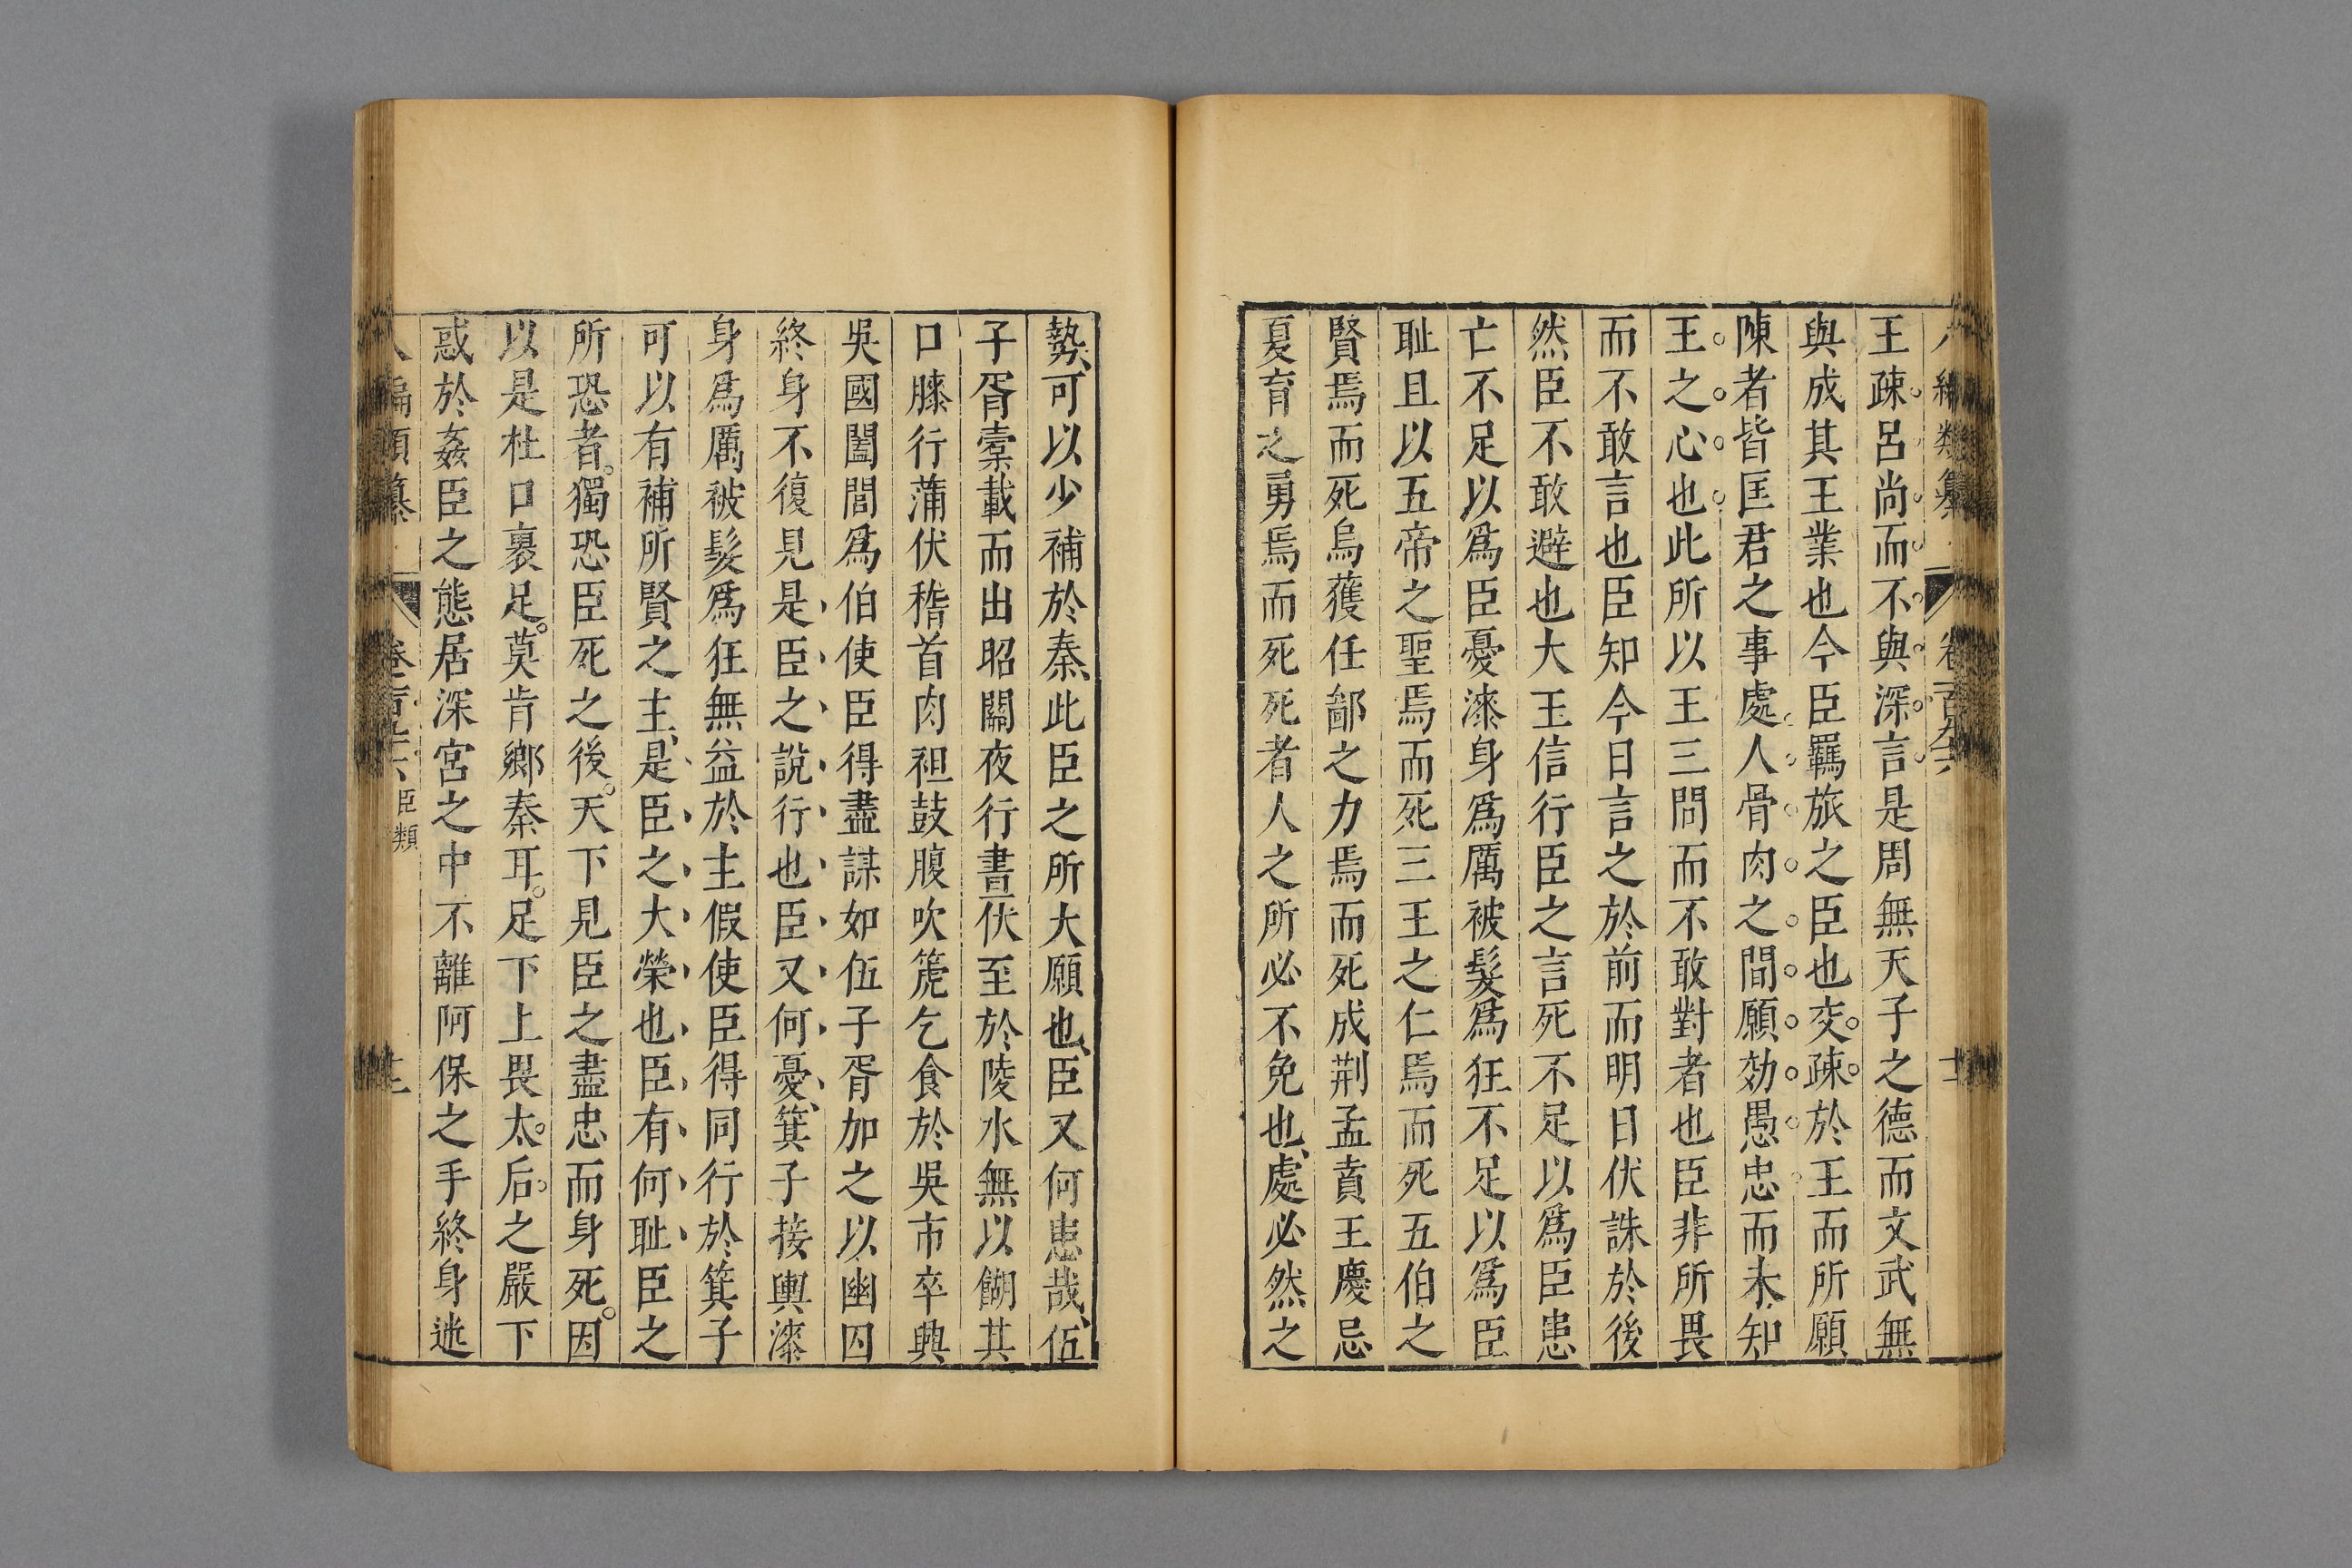 王疎呂尚而不與深言是周無天子之德而文武無
與成其王業也今臣羈旅之臣也交疎於王而所願
陳者皆匡君之事處人骨肉之間願効愚忠而未知
王之心也此所以王三問而不敢對者也臣非所畏
而不敢言也臣知今日言之於前而明日伏誅於後
然臣不敢避也大王信行臣之言死不足以爲臣患
亡不足以爲臣憂漆身爲厲被髮爲狂不足以爲臣
耻且以五帝之聖焉而死三王之仁焉而死五伯之
賢焉而死烏獲任鄙之力焉而死成荆孟賁王慶忌
夏育之勇焉而死死者人之所必不免也處必然之
勢可以少補於秦此臣之所大願也臣又何患哉伍
子胥橐載而出昭關夜行晝伏至於陵水無以餬其
口膝行蒲伏稽首肉袒鼓腹吹篪乞食於吳市卒興
吳國闔閭爲伯使臣得盡謀如伍子胥加之以幽囚
終身不復見是臣之說行也臣又何憂箕子接輿漆
身爲厲被髮爲狂無益於主假使臣得同行於箕子
可以有補所賢之主是臣之大榮也臣有何耻臣之
所恐者獨恐臣死之後天下見臣之盡忠而身死因
以是杜口裹足莫肯鄉秦耳足下上畏太后之嚴下
惑於姦臣之態居深宮之中不離阿保之手終身迷
編類纂 卷 臣類